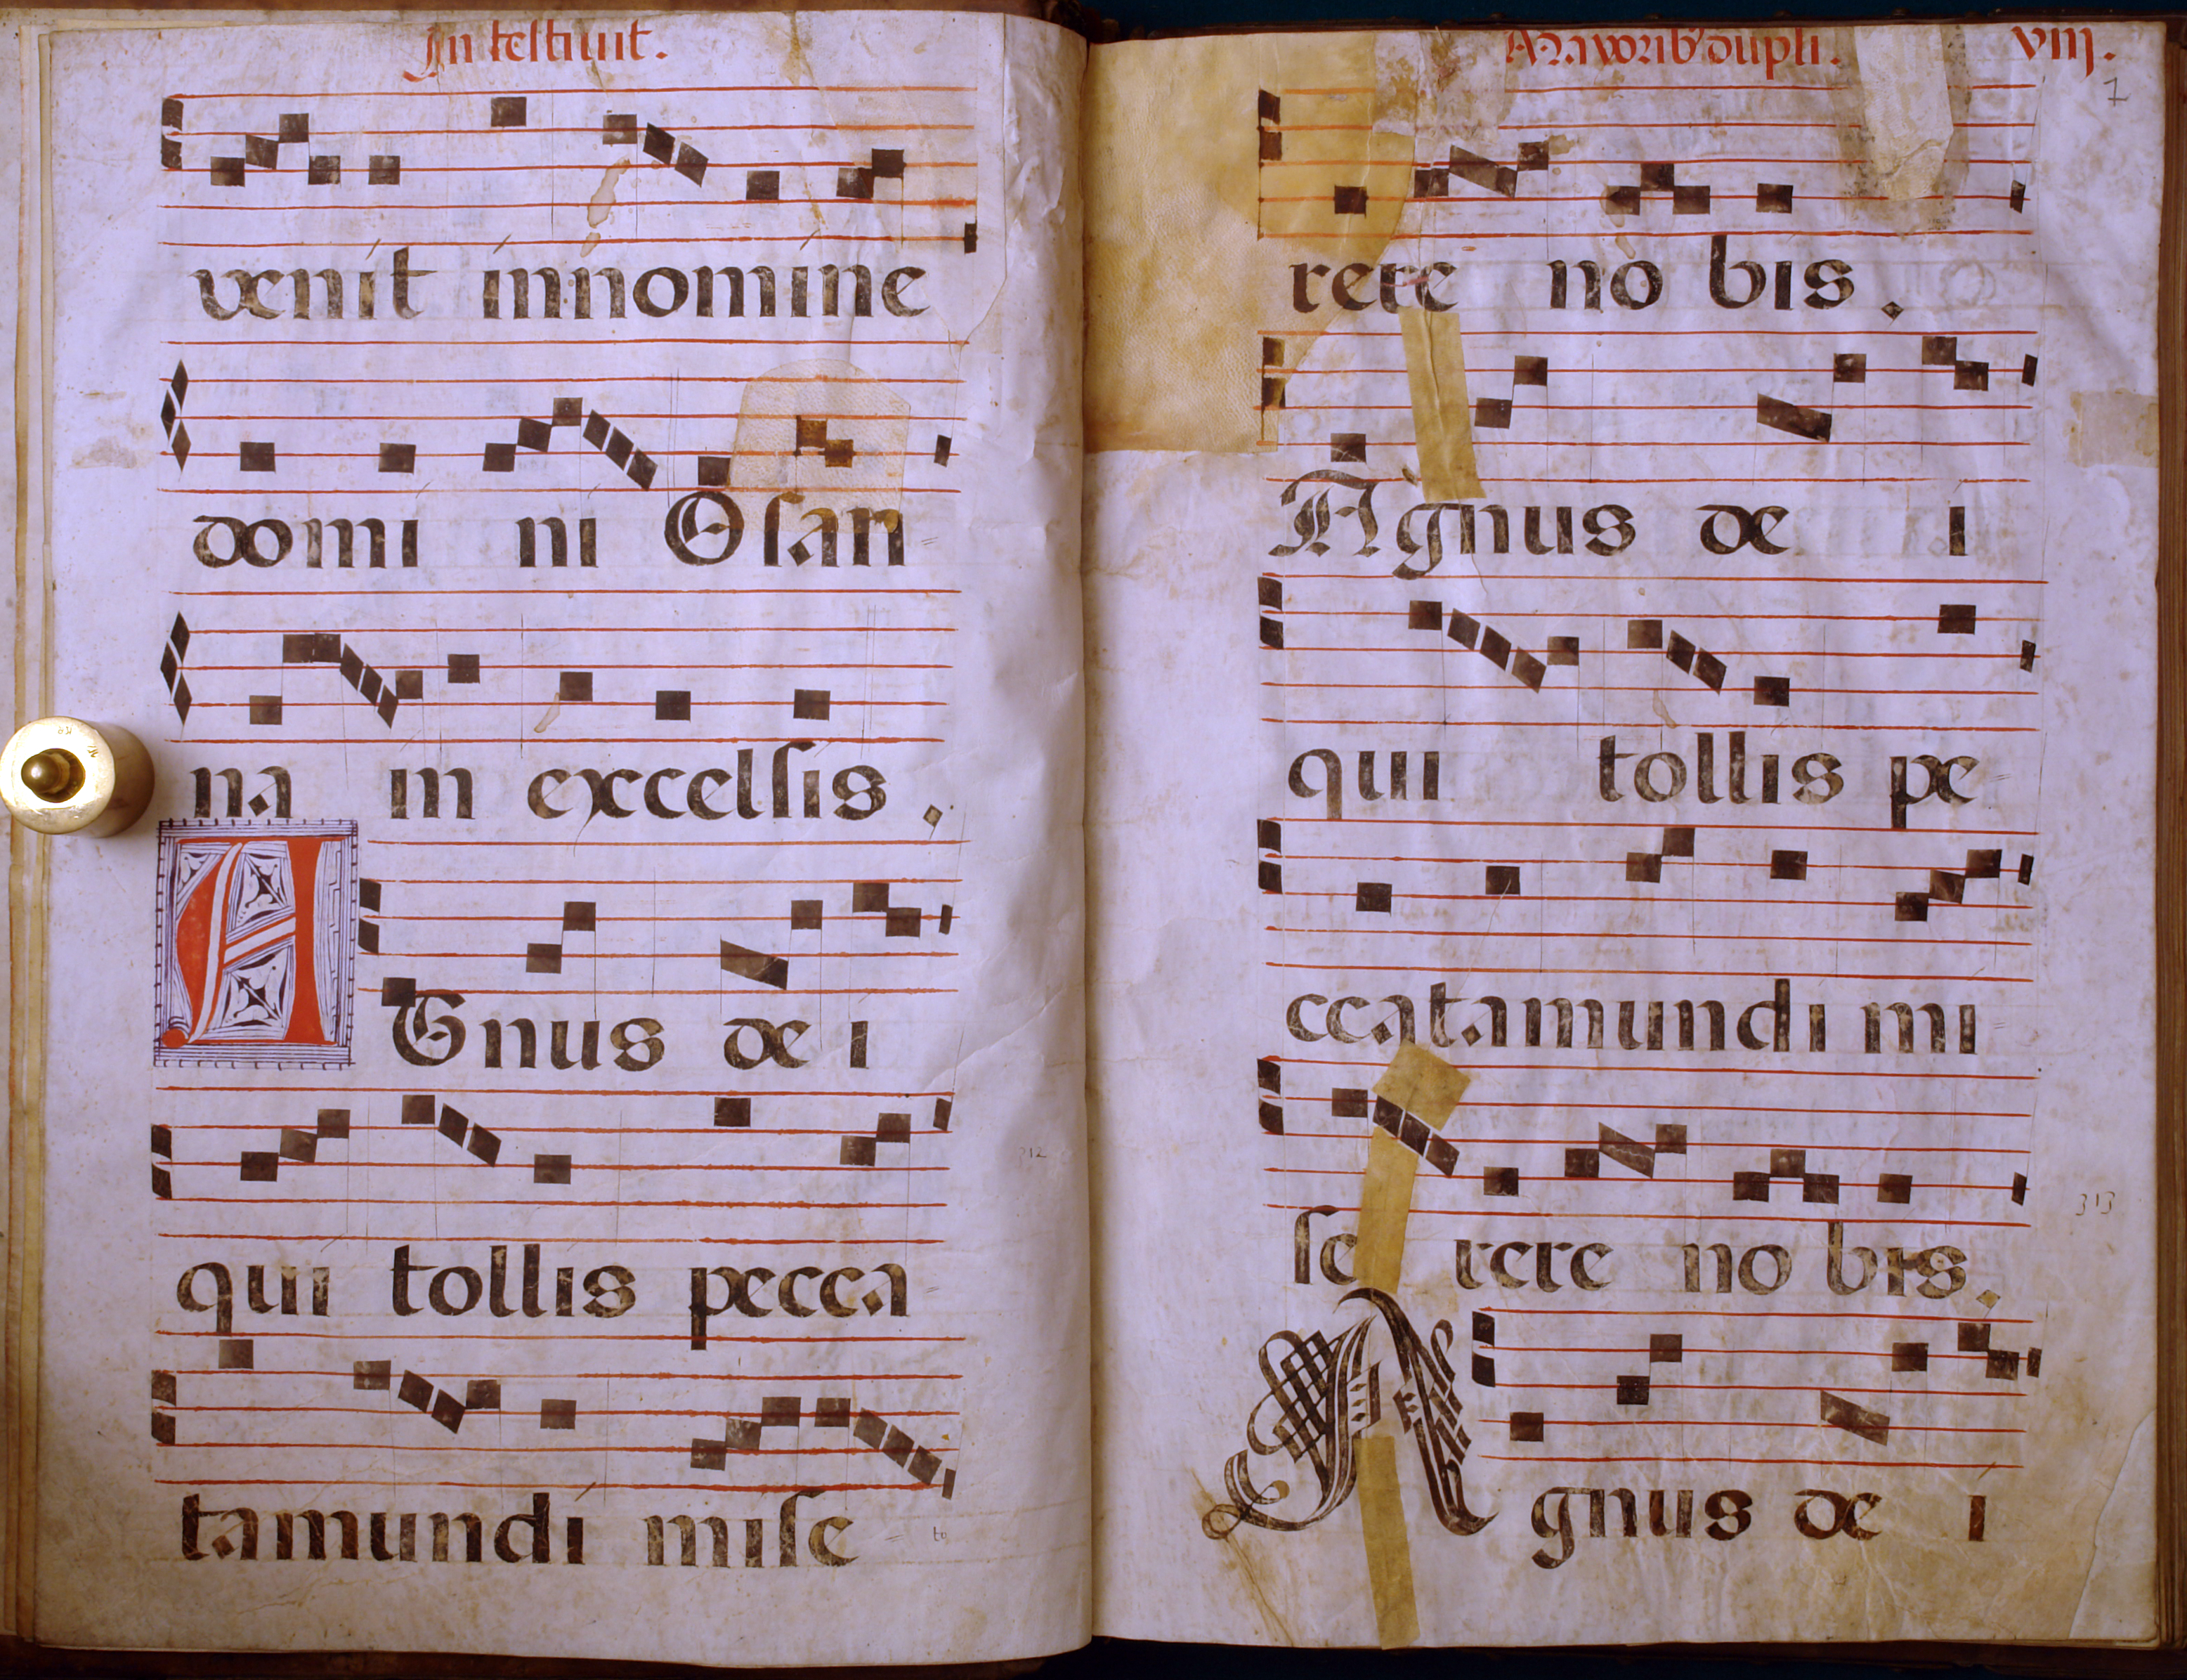 In festiuit.
venit innomine
domi ni Osan
na in excelsis.
AGnus de i
qui tollis pecca
tamundi mise
to
312
Maiorib' dupli. viij.
1
rere no bis.
Agnus de i
qui tollis pe
ccatamundi mi
se rere no bis.
313
Agnus de i